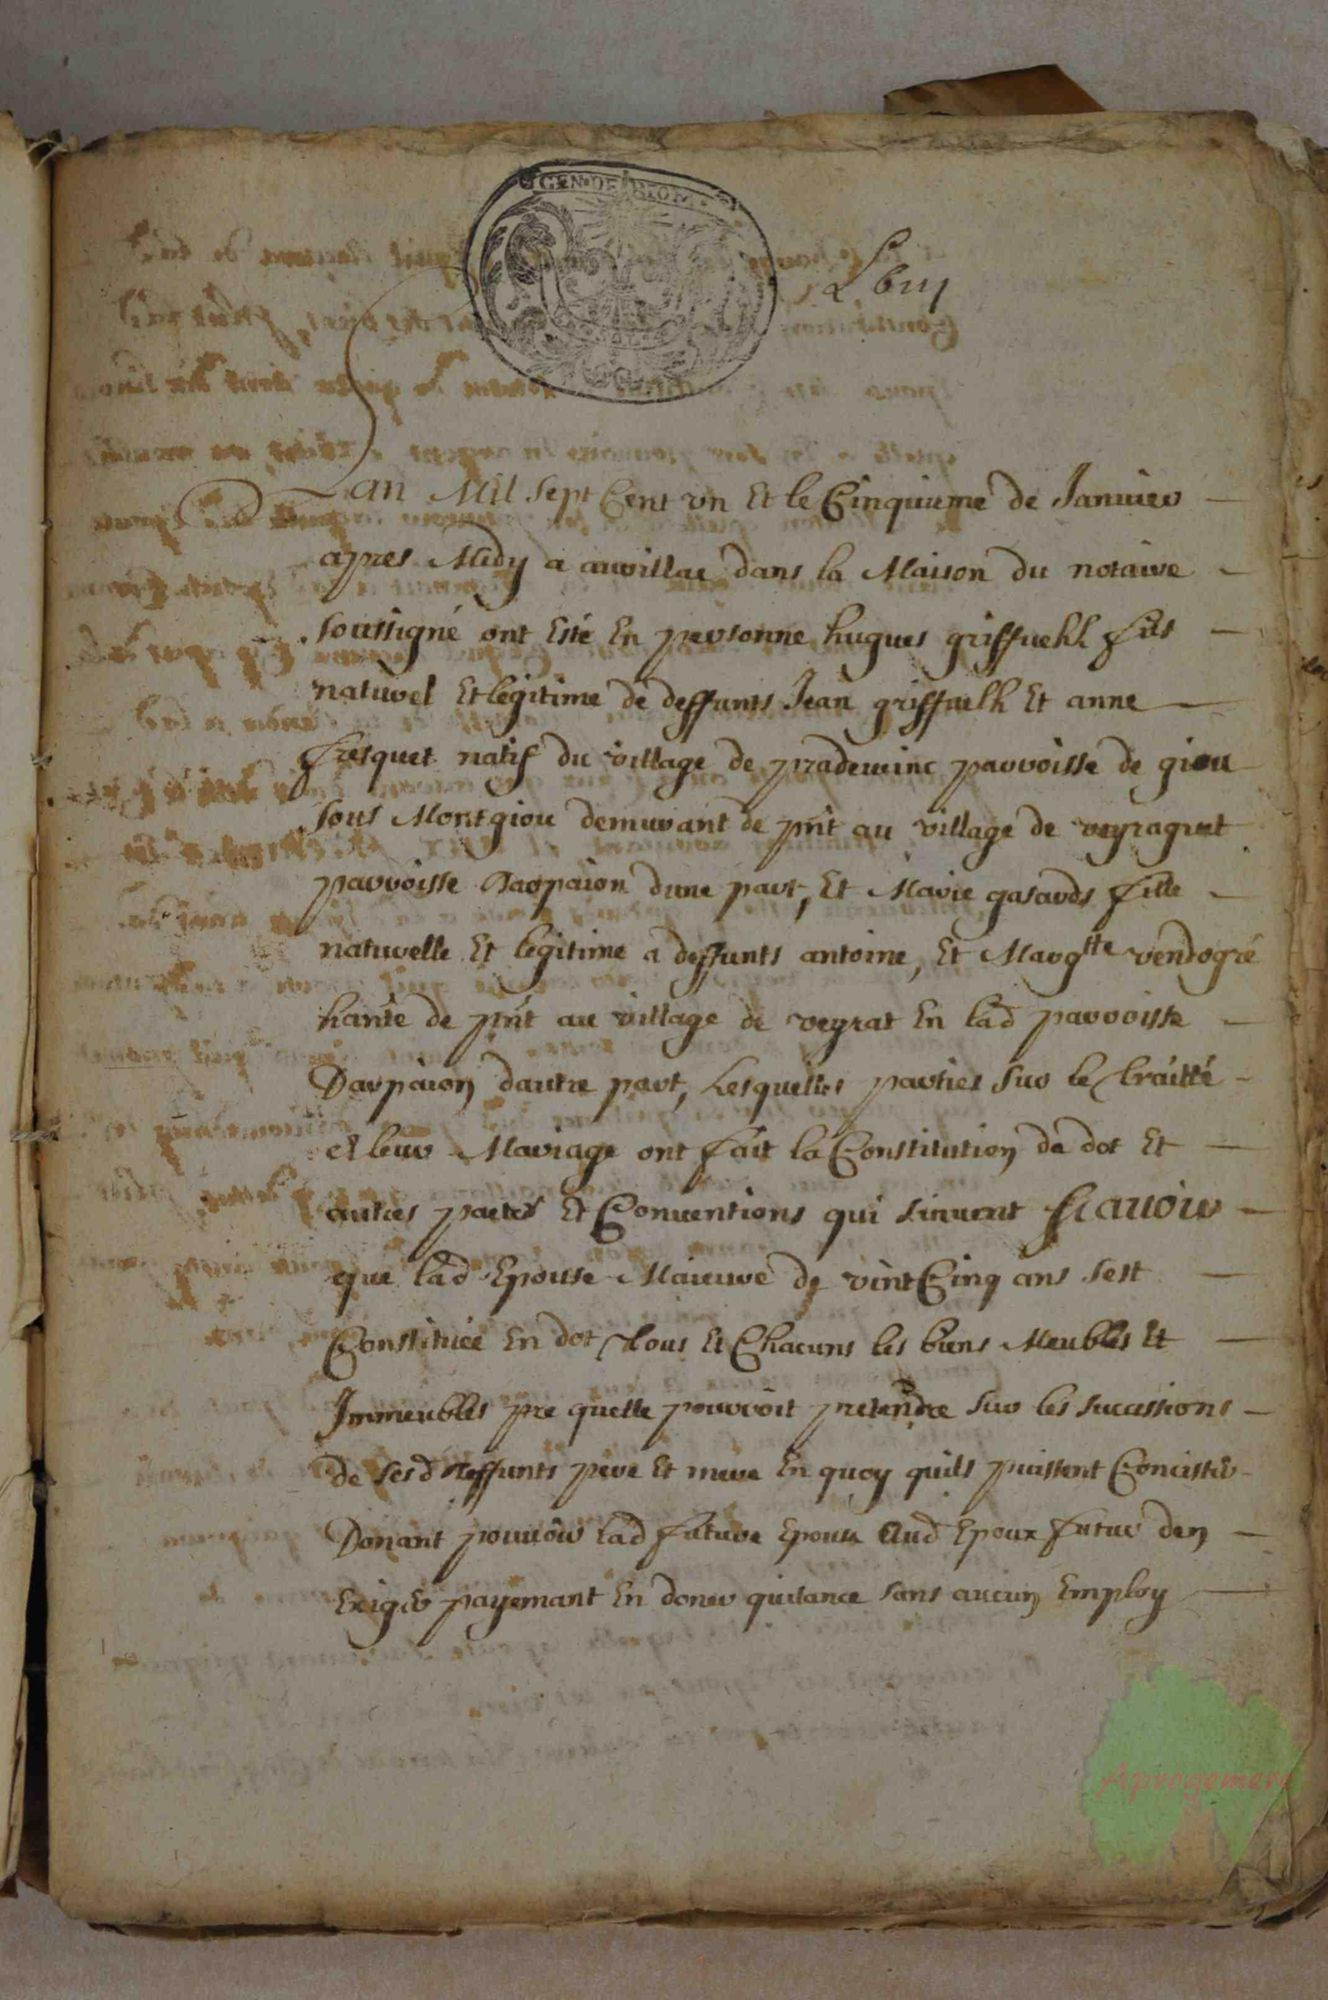 GEN·DE RIOM
Lan Mil sept Cent vn Et le Cinquieme de Januier
apres Midy a aurillac dans la Maison du notaire
soussigné ont Esté En personne hugues griffuelhe fils
naturel Et legitime de deffunts Jean griffuelh Et anne
fresquet natif du village de pradeuinc parroisse de giou
sous Montgiou demurant de pnt au village de veyragnet
parroisse Darpaion dune part, Et Marie gasards fille
naturelle Et legitime a deffunts antoine, Et Margtte vendogré
hante de pnt au village de veyrat En lad parroisse
Darpaion dautre part, Lesquelles parties sur le traitté
el leur Mariage ont fait la Constitution de dot Et
autres pactes Et Conuentions qui sinurnt scauoir
que lad Epouse Maieure de vint Cinq ans sest
Constituée En dot tous Et Chacuns les biens Meubles Et
Immeubles pre quelle pourroit pretendre sur les sucassions
de sesd deffunts pere Et mere En quoy quils puissent Concister
Donant pouuoir lad future Epouse Aud Epoux futur den
Exiger payemant En doner quitance sans aucun Employ
Aprogemere